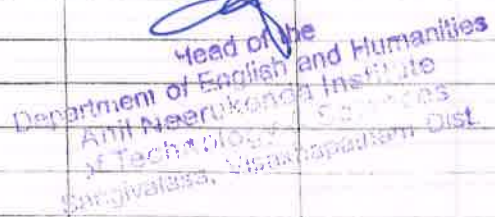 Head of the
Department of English and Humanities
Anil Neerukonda Institute
of Technology & Sciences
Sangivalasa, Visakhapatnam Dist